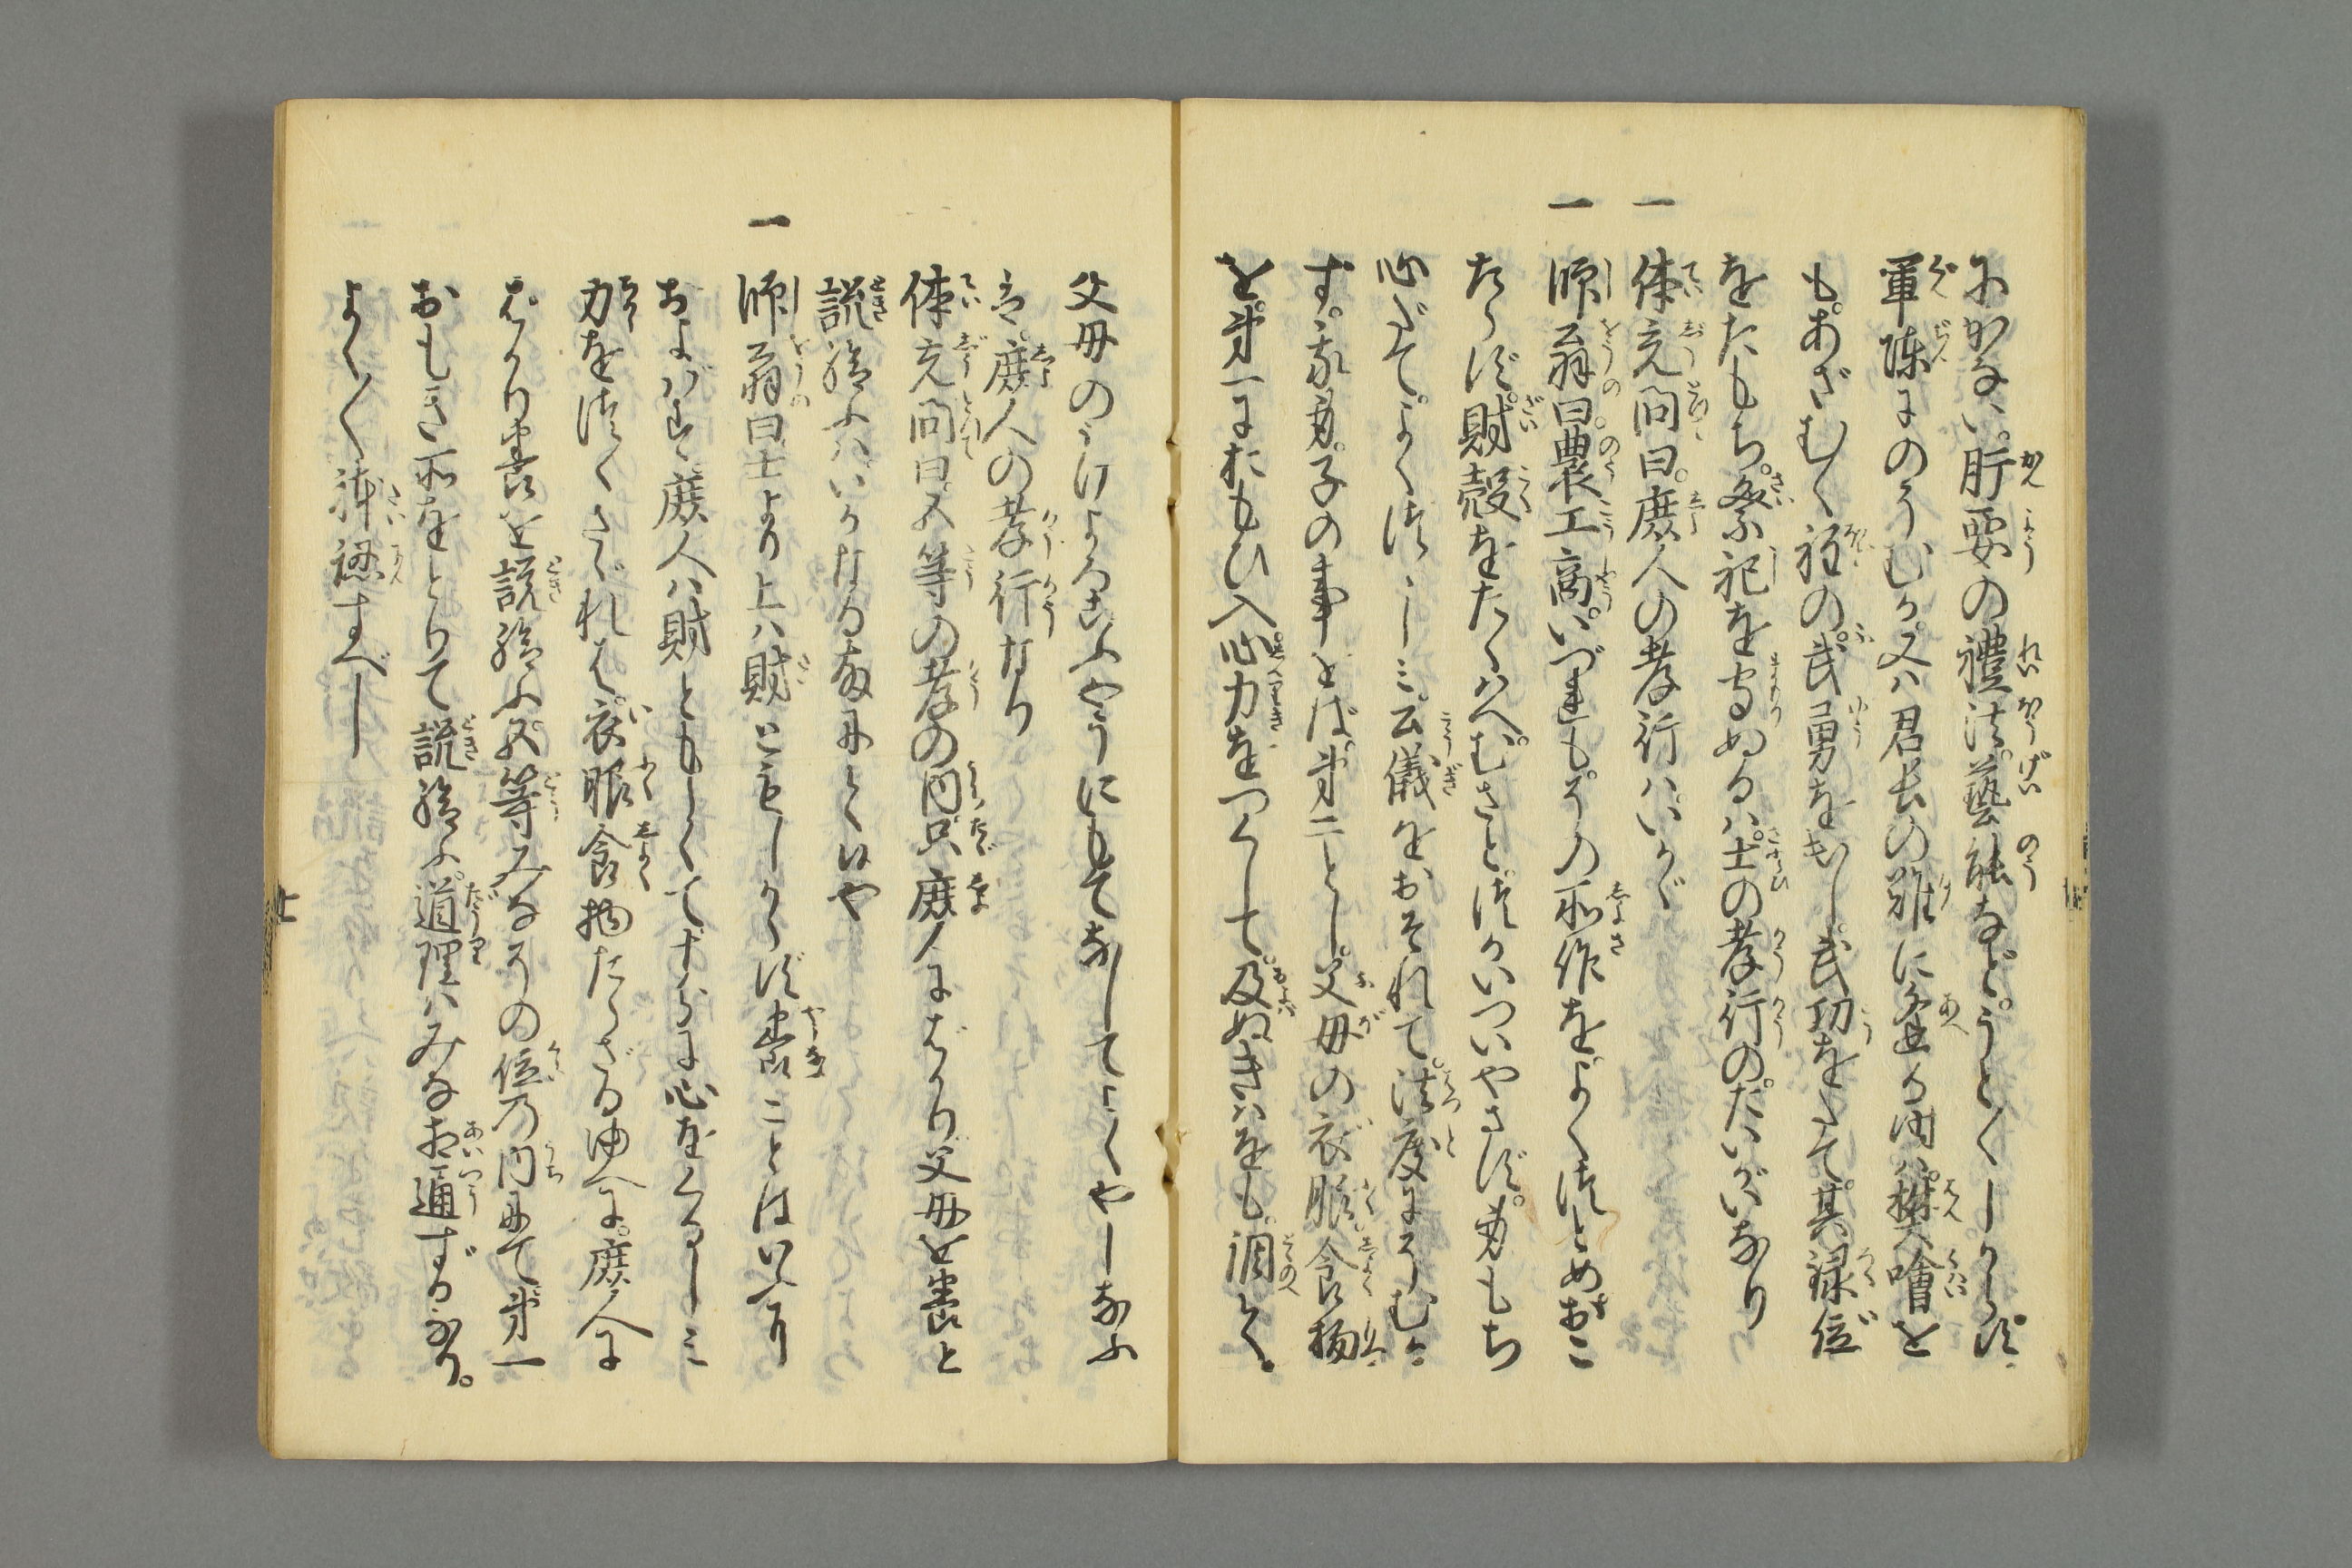 にかなひ。肝要の禮法。藝能など。うとくしからず。
軍陳にのぞむか。又ハ君長の難に逢る時ハ。樊噲を
も。あざむく程の。武勇をはげし。武功をたて。其禄位
をたもち。祭祀を守ぬるハ。士の孝行の。だいがいなり
一 体充問曰。庶人の孝行ハ。いかゞ
一 師翁曰。農工商。いづれも。その所作を。よくつとめ。おこ
たらず。財穀をたくハへ。むさとつかいついやさず。身もち
心だて。よくつゝしミ。公儀をおそれて。法度にそむか
ず。我身。子の事をば。第二とし。父母の衣服食物
を。第一におもひ入。心力をつくして。及ぬきハをも。調て。
父母のうけよろこふやうにもてなしてよくやしなふ
を。庶人の孝行なり
体充問曰。五等の孝の内。只庶人にばかり父母を養と
説給ふハいかなる故にて候や
一 師翁曰士より上ハ財ともしからず養ことはいふに
およばず庶人ハ財ともしくて十分に心をくるしミ
力をつくさゞれば。衣服食物たらざるゆへに。庶人に
ばかり養を説給ふ。五等みなその位の内にて第一
おもき所をとりて説給ふ。道理ハみな相通ずるなり。
よく〳〵體認すべし